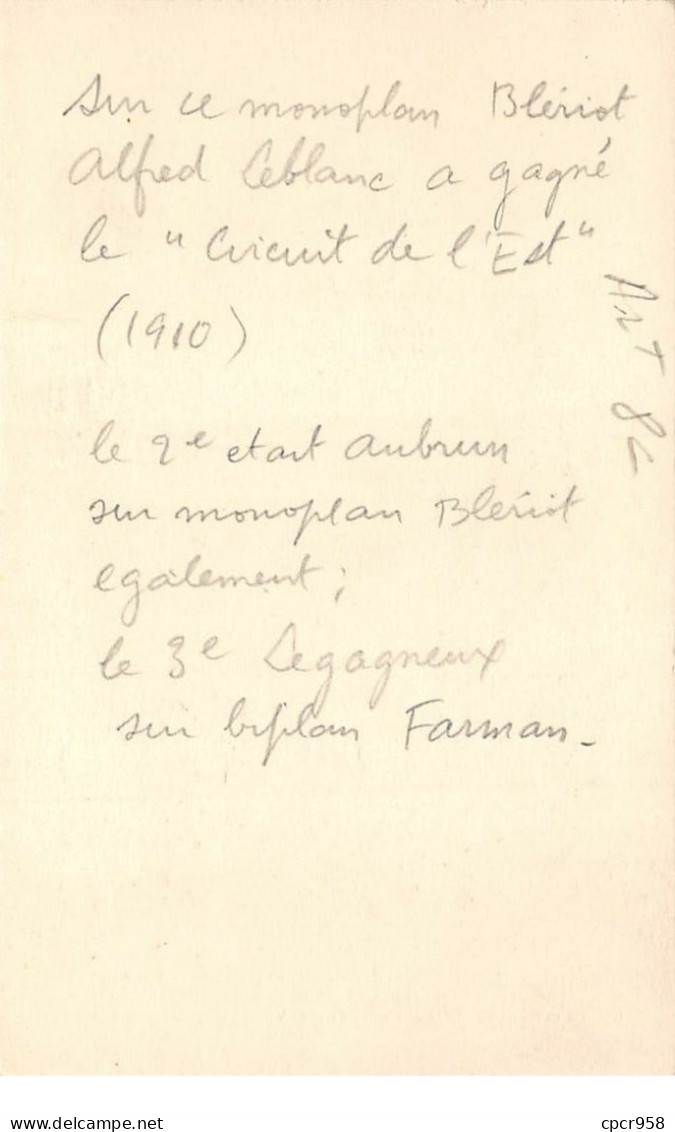 sur ce monoplan Blériot
Alfred Leblanc a gagné
le "Circuit de l'Est"
(1910)
le 2e etait Aubrun
sur monoplan Blériot
egalement;
le 3e Legagneux
sur biplan Farman-
cpcr958